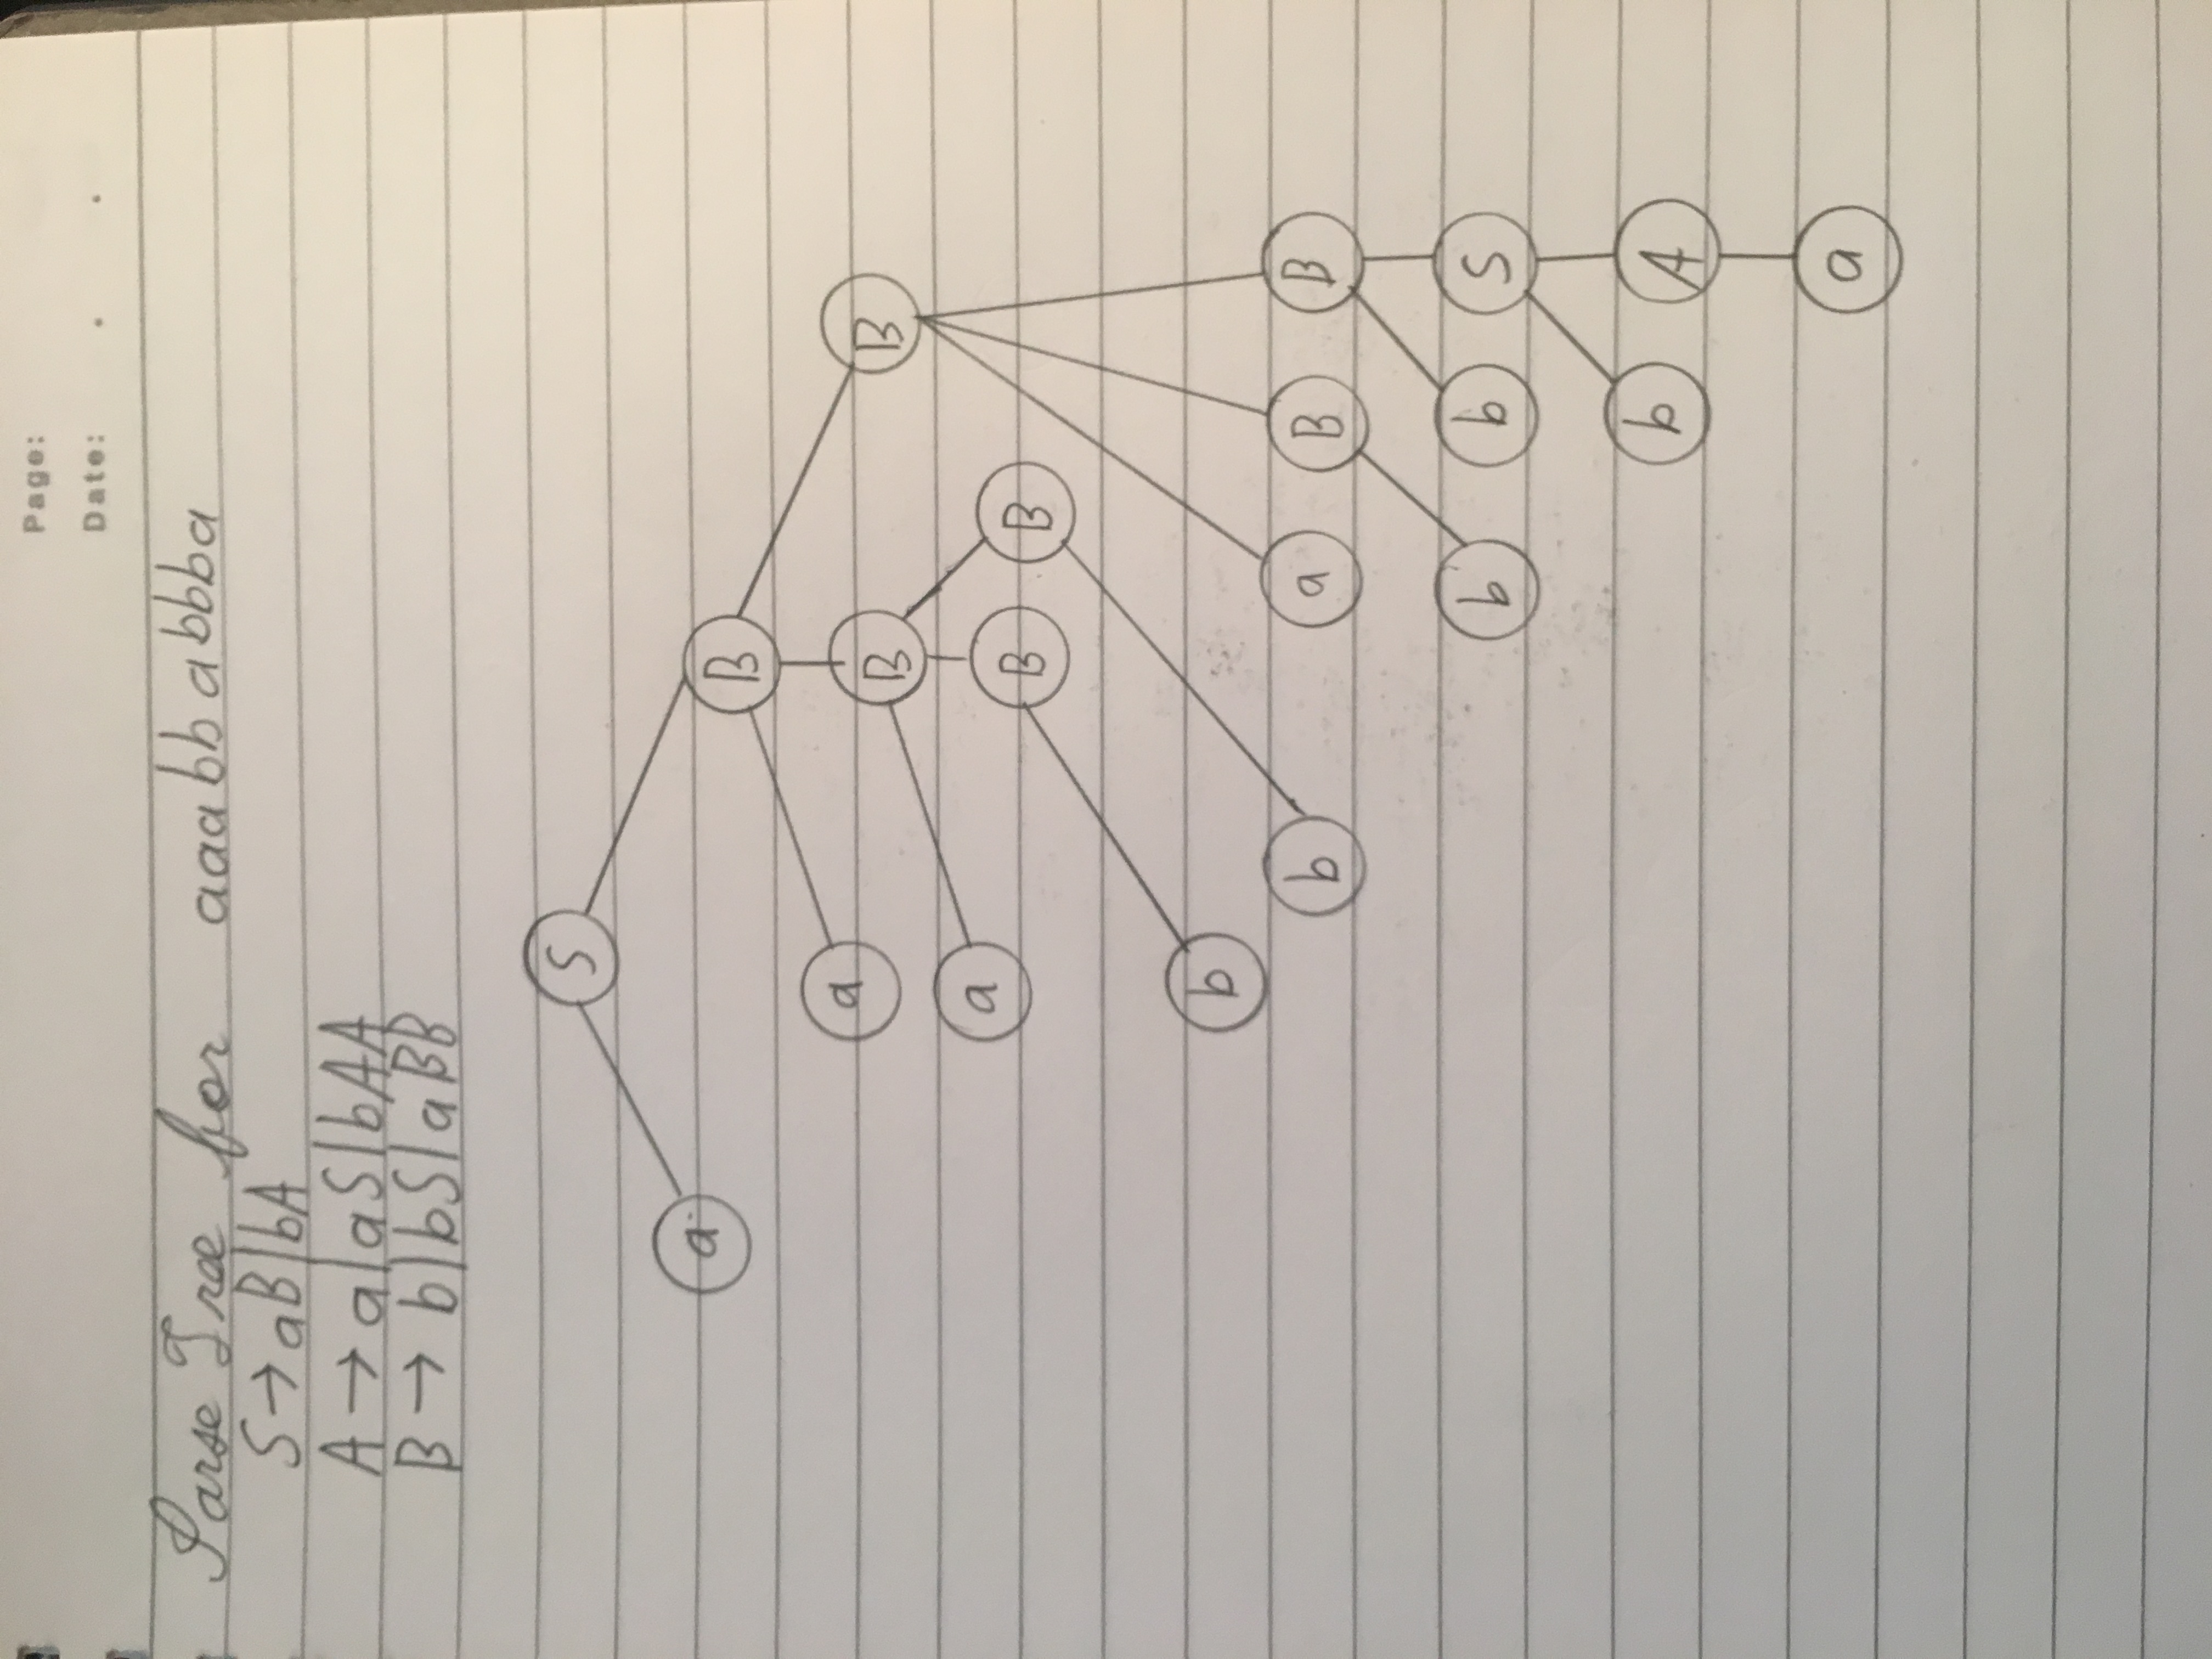 Page:
Date: . .
Parse Tree for aaabbabbba
S → aB|bA
A → a|aS|bAA
B → b|bS|aBB
S
a
B
a
B
B
a
B
B
b
b
a
B
B
b
b
S
b
A
a